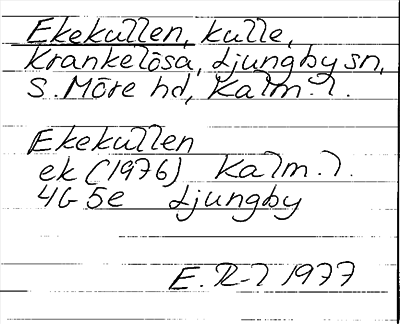 Ekekullen, kulle,
Krankelösa, Ljungby sn,
S. Möre hd, Kalm. l.
Ekekullen
ek (1976) Kalm. l.
4G 5e Ljungby
E. R-l 1977